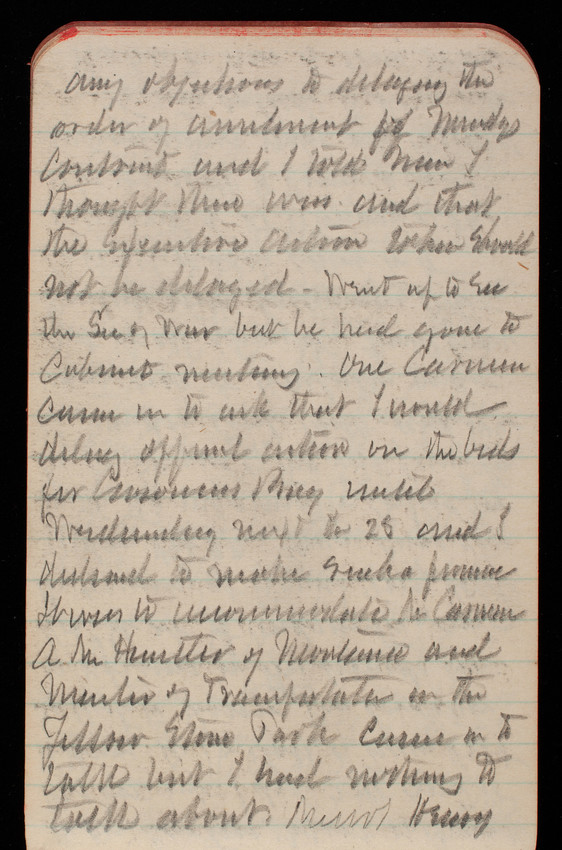 any objections to delaying the
order of annulment of Mundys
Contract and I told him I
thought there was and that
the executive action taken should
not be delayed - Went up to see
the Sec of War but he had gone to
Cabinet meeting. One Carmen
came in to ask that I would
delay official action on the bids
for Bay until
Wednesday next the 28 and I
declined to make such a promise
It was to accommodate Mr Carmen
A Mr Huntley of Montana and
of Transportation in the
Yellow Stone Park came in to
talk but I had nothing to
talk about. Henry